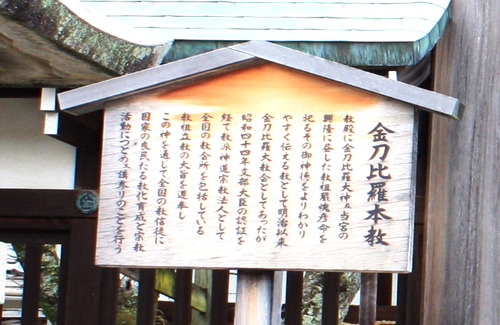 金刀比羅本教
教殿に金刀比羅大神と当宮の
興隆に尽した教祖厳魂彦命を
祀るその御神徳をよりわかり
やすく伝える教として明治以来
金刀比羅大教会としてあったが
昭和四十四年文部大臣の認証を
経て教派神道宗教法人として
全国の教会所を包括している
教祖立教の大旨を遵奉し
この神を通して全国の教信徒に
国家の良民たる教化育成と宗教
活動につとめ講参りのことを行う